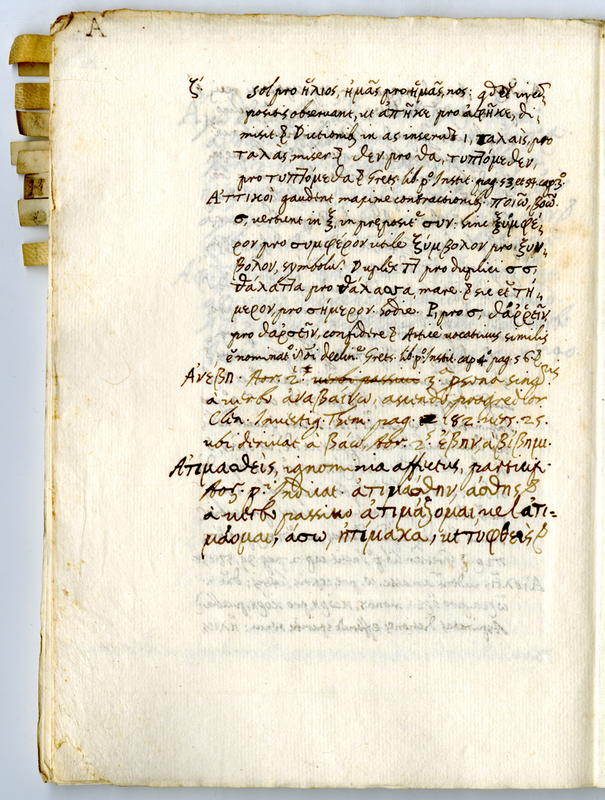 A
sol pro ἥλιος, ἡμᾶς pro ἡμᾶς, nos:
positis observant, ut ἀπῆκε pro ἀφῆκε, di-
misit Dictionib. in as inserunt ι, ταλαις, pro
ταλας, miser. θεν pro θα, τυπτομεθεν,
pro τυπτομεθα Grets. lib. pº Instit. pag. 53 et 54 cap. 3º.
Αττικοὶ gaudent maxime contractionib. ποιῶ, βοῶ.
σ, vertunt in ξ, in preposit. συν: sinc ξυμφέ-
ρον pro συμφερον utile ξύμβολον pro ξυν-
βολον, symbolū. Duplex ττ pro duplici σσ,
θαλαττα pro θαλασσα, mare. sic et τή-
μερον, pro σήμερον. hodie. Ρ, pro σ, θαῤῥεῖν
pro θαρσεῖν, confidere Attice vocativus similis
ē nominat. Grets. lib. pº Instit. cap. 4º pag. 56
Ανεβη. Aor. 2. verbi passivo 3. psona sing.
à verbo ἀναβαίνω, ascendo, progredior
Clen. Investig. Them. pag. 182. vers. 25.
ubi derivat à βαω, Aor. 2. ἔβην, à βίβημι.
Ατιμασθεις, ignominia affectus, particip.
Aor. p. Indicat. ατιμασθην, ασθης
à verbo passivo ατιμάζομαι vel ατι-
μάομαι, άσω, ητίμακα, ut τυφθεὶς